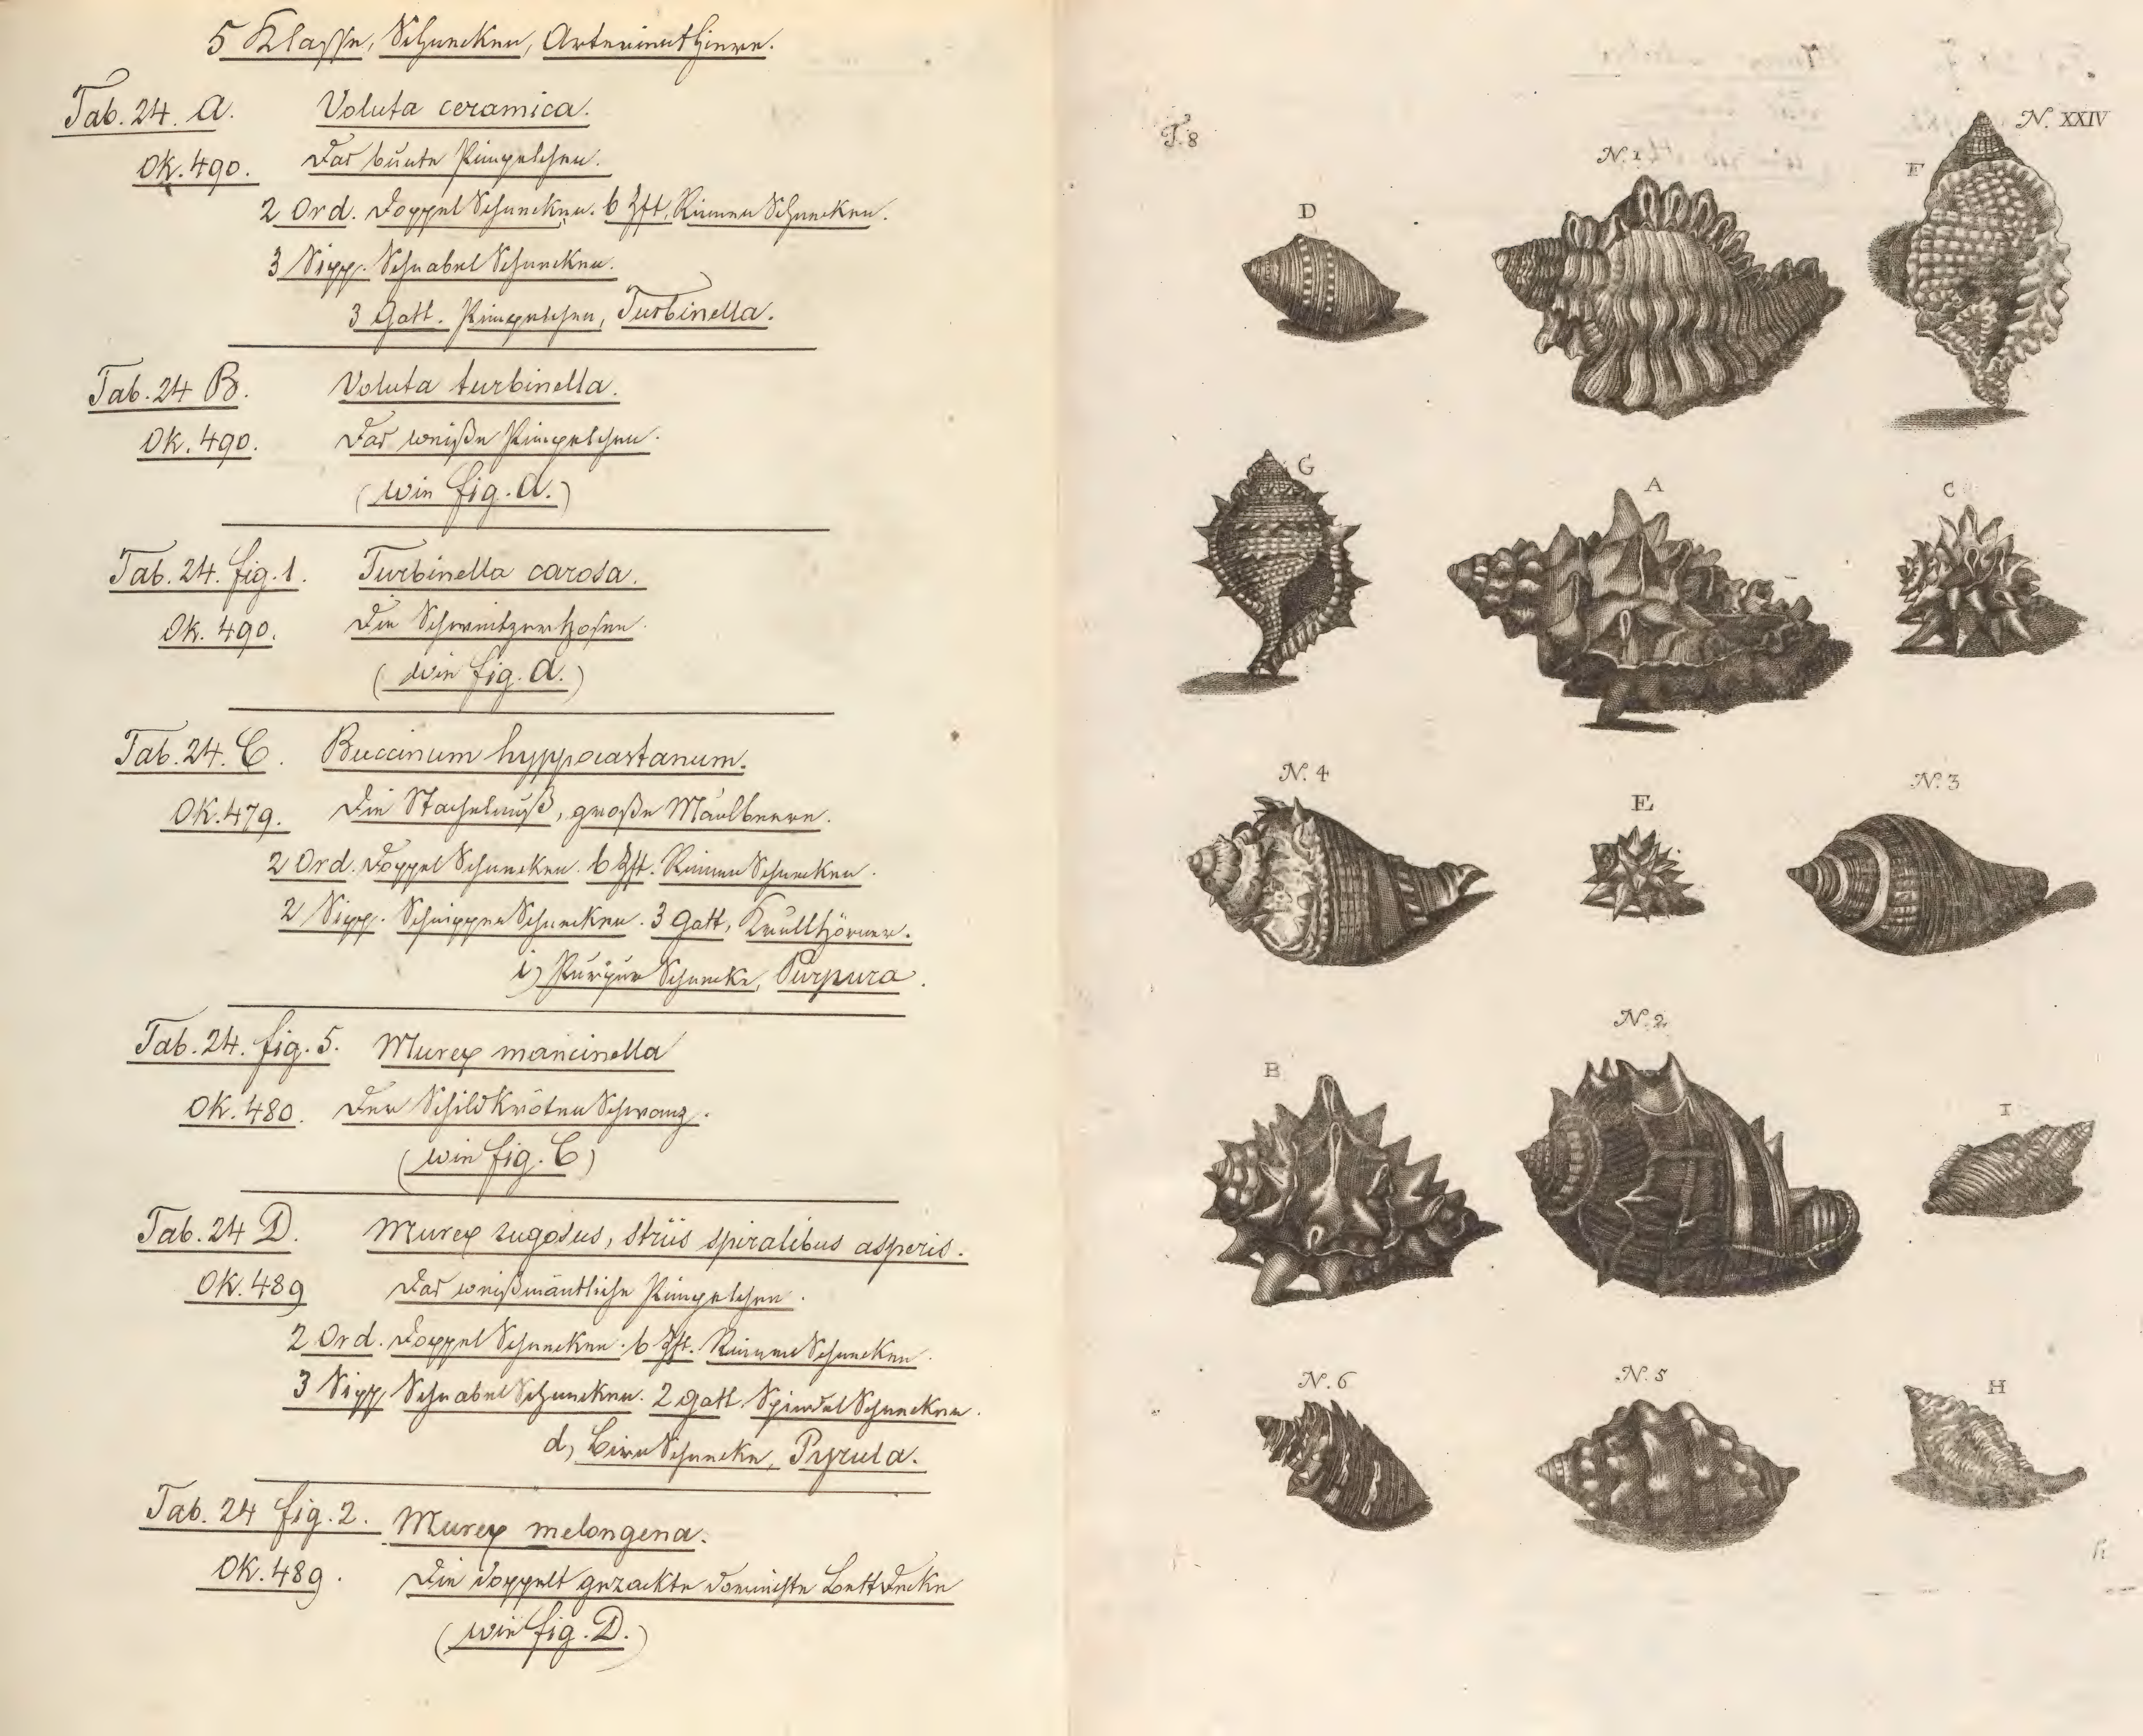 5 Klasse, Schnecken, Arterienthiere.
Tab. 24. A. Voluta ceramica.
Ok. 490. Das bunte Pimpelchen.
2 Ord. Doppel Schnecken. 6 Zft. Rinnen Schnecken.
3 Sipp. Schnabel Schnecken.
3 Gatt. Pimpelchen, Turbinella.
Tab. 24 B. Voluta turbinella.
Ok. 490. Das weiße Pimpelchen.
(wie fig. A.)
Tab. 24. fig. 1. Turbinella
Ok. 490. Die Schweitzerhosen.
(wie fig. A.)
Tab. 24. C. Buccinum hyppocastanum.
Ok. 479. Die Stachelnuß, große Maulbeere.
2 Ord. Doppel Schnecken. 6 Zft. Rinnen Schnecken.
2 Sipp. Schnippen Schnecken. 3 Gatt, Knullhörner.
Purpur Schnecke, Purpura.
Tab. 24. fig. 5. Murex mancinella
Ok. 480. Der SchildkrötenSchwanz.
(wie fig. C)
Tab. 24 D. Murex rugosus, striis spiralibus asperis.
Ok. 489 Das Pimpelchen.
2 Ord. Doppel Schnecken. 6 Zft. Rinnen Schnecken.
3 Sipp. Schnabel Schnecken. 2 Gatt. Spindel Schnecken.
d, Birn Schnecke, Pyrula.
Tab. 24 fig. 2. Murex melongena.
Ok. 489. Die doppelt gezackte Bettdecke
(wie fig. D.)
T. 8
N. XXIV
D
N. 1
F
G
A
C
N. 4
E
N. 3
B
N. 2
I
N. 6
N. 5
H